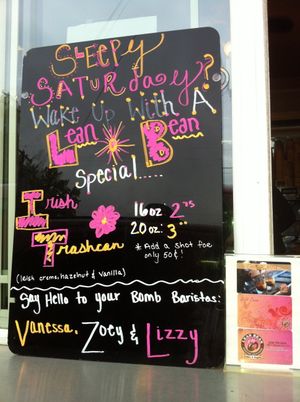 SLEEPY
SATURday?
Wake Up With A
Lean Bean
Special.....
Irish
Trashcan
16oz 2.75
20oz: 3.00
* Add a shot for
only 50¢!
(Irish creme, hazelnut & Vanilla)
Say Hello to your Bomb Baristas:
Vanessa, Zoey & Lizzy